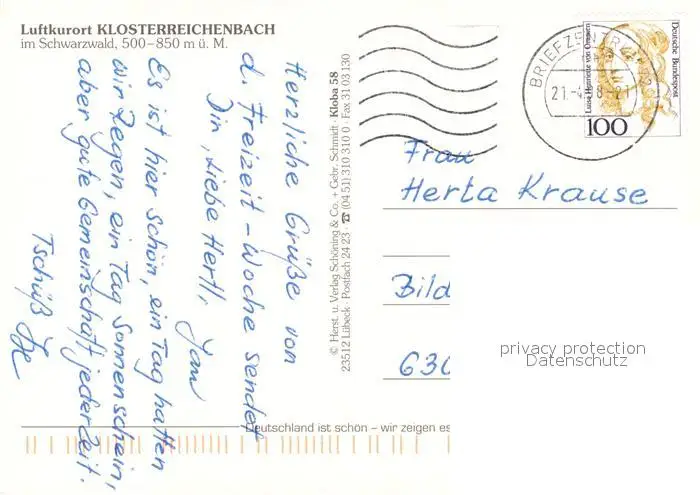 Luftkurort KLOSTERREICHENBACH
im Schwarzwald, 500–850 m ü. M.
Herzliche Grüße von
d. Freizeit-Woche sendet
Dir, liebe Hertl,
Es ist hier schön, ein Tag hatten
wir Regen, ein Tag Sonnenschein,
aber gute Gemeinschaft jederzeit.
Tschüß
© Herst. u. Verlag Schöning & Co. + Gebr. Schmidt · Kloba 58
23512 Lübeck · Postfach 24 23 · ☎ (04 51) 310 310 0 · Fax 31 03 130
BRIEFZENTRUM
21.-4.
8-21
Luise Henriette von Oranien
Deutsche Bundespost
100
Frau
Herta Krause
Bild
630
privacy protection
Datenschutz
Deutschland ist schön – wir zeigen es